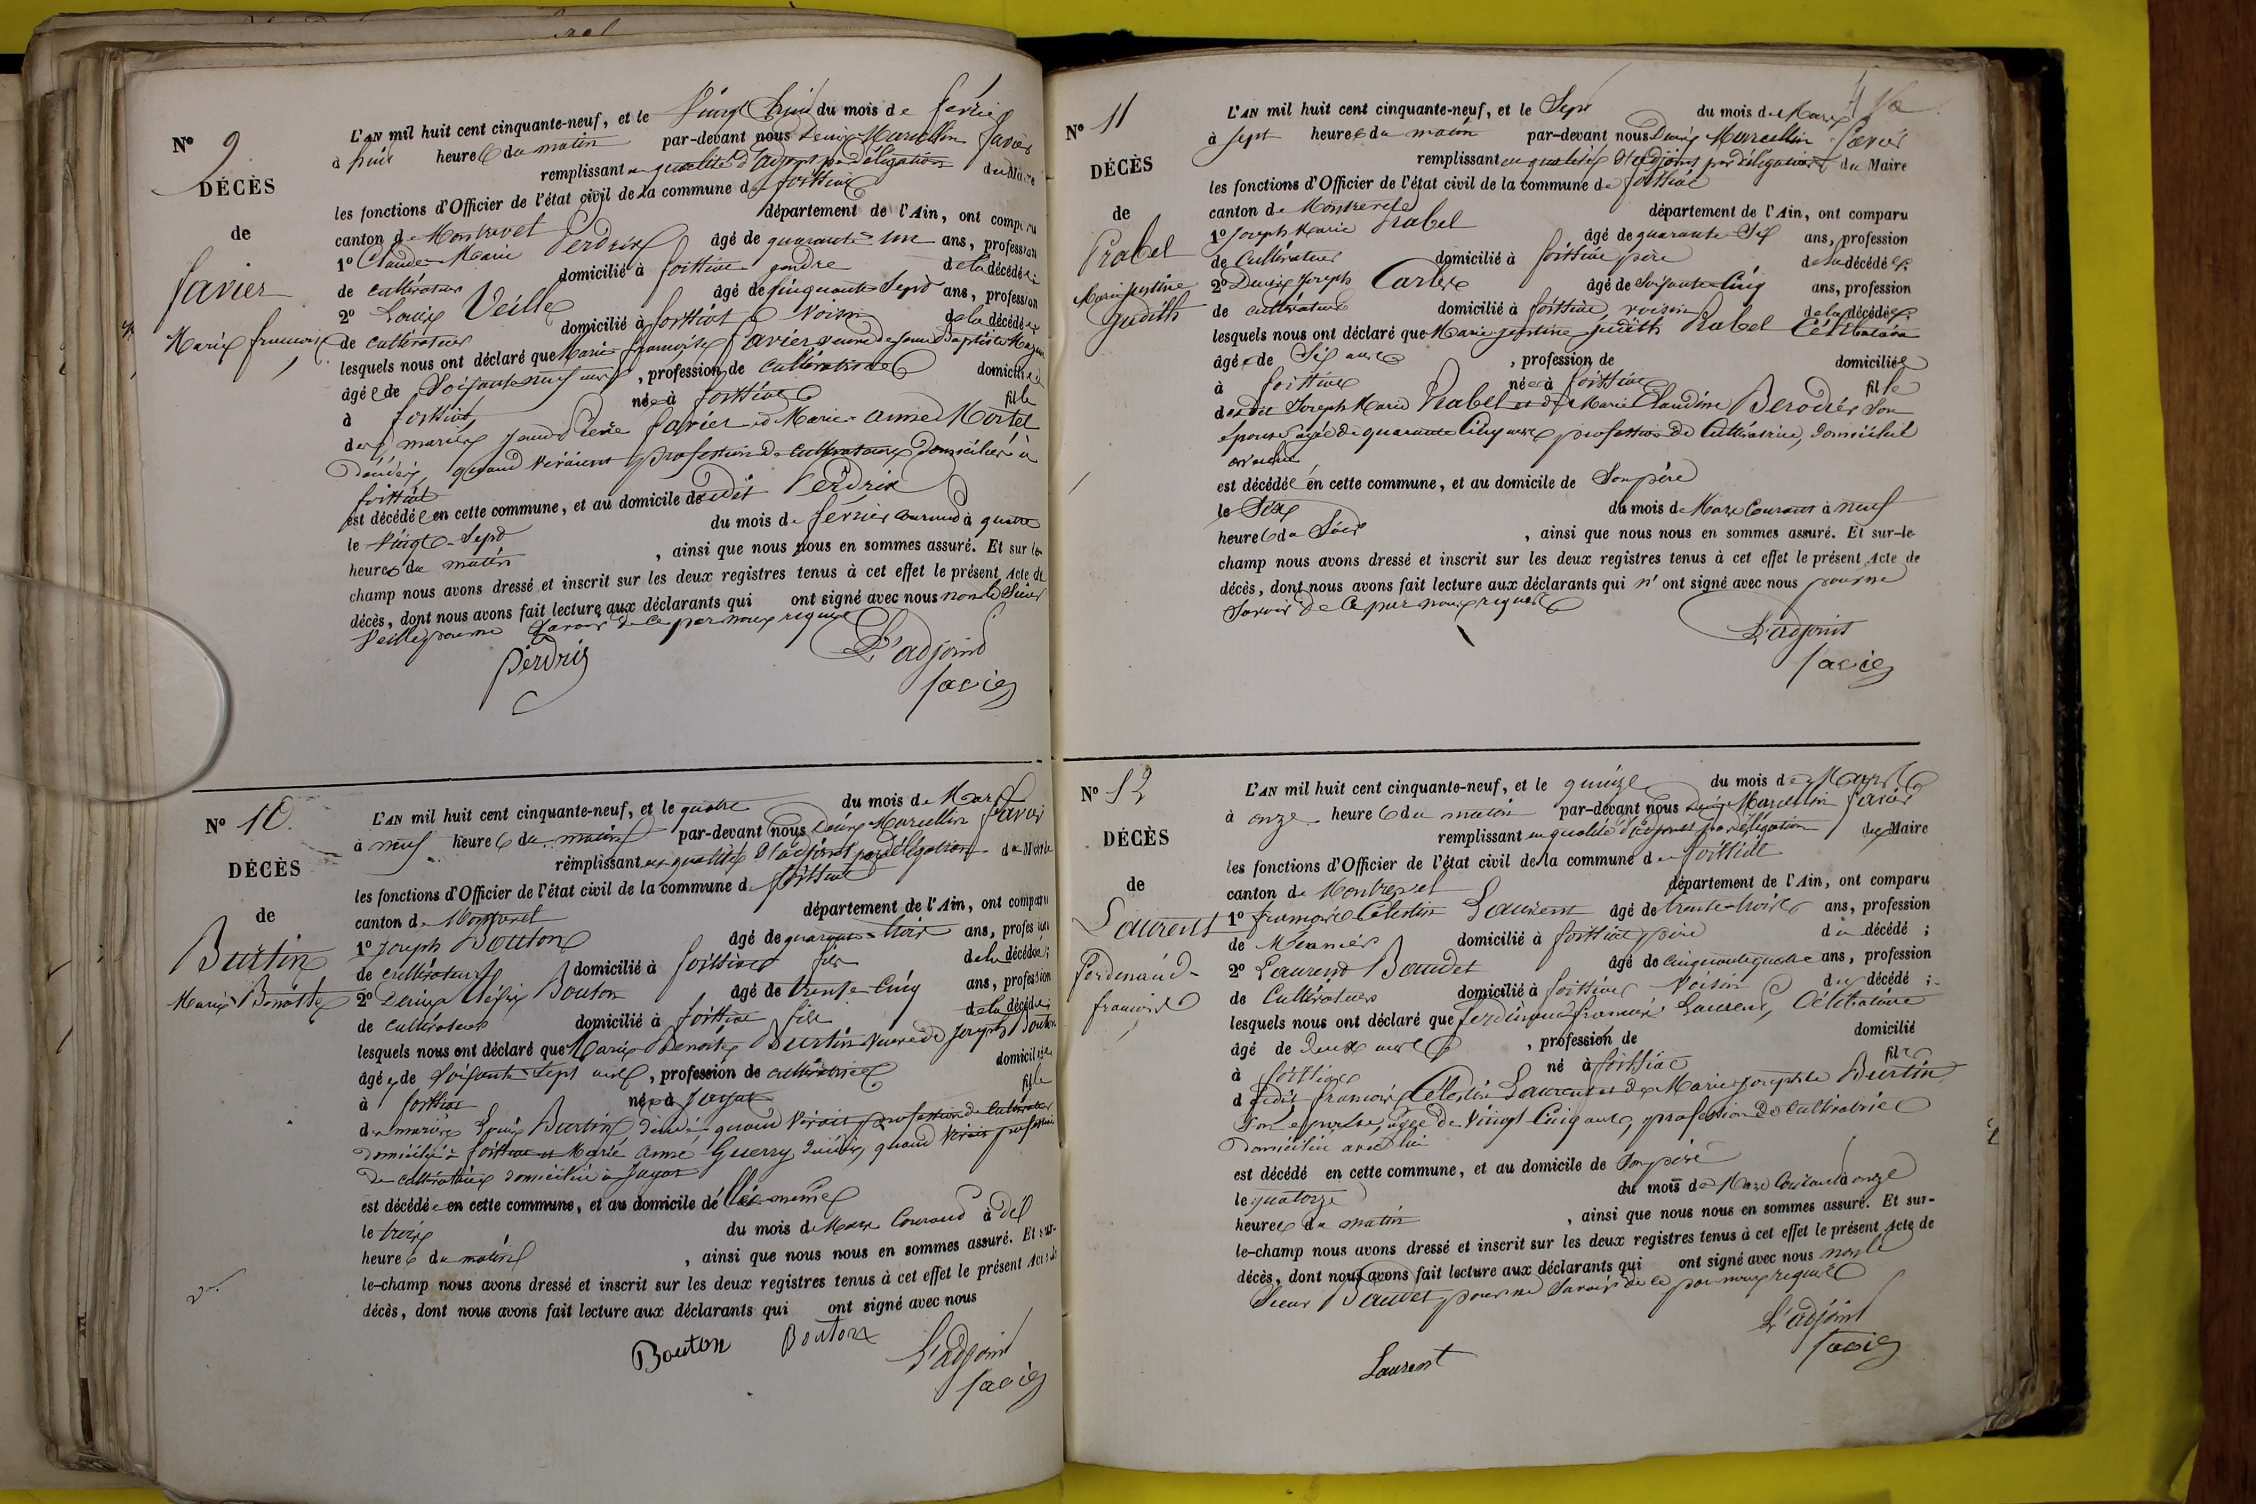 N° 9
DÉCÈS
de
favier
Marie françoise
L'AN mil huit cent cinquante-neuf, et le Vingt huit du mois de février
à huit heures du matin par-devant nous Denis Marcellin favier
remplissant en qualité d'adjoint par délégation du Maire
les fonctions d'Officier de l'état civil de la commune de foissiat
canton de Montrevel département de l'Ain, ont comparu
1° Claude-Marie Perdrix âgé de quarante-un ans, profession
de cultivateur domicilié à foissiat gendre de la décédée;
2° Louis Veille âgé de cinquante Sept ans, profession
de cultivateur domicilié à foissiat Voisin de la décédée
lesquels nous ont déclaré que Marie françoise favier veuve de Jean Baptiste
âgée de Soixante neuf ans, profession de cultivatrice domiciliée
à foissiat née à foissiat fille
des mariés Jean Pierre favier et Marie-Anne Mortel
Décédés, quand vivaient profession de cultivateurs domiciliés à
foissiat
est décédée en cette commune, et au domicile dudit Perdrix
le Vingt-Sept du mois de février courant à quatre
heures du matin, ainsi que nous nous en sommes assuré. Et sur le-
champ nous avons dressé et inscrit sur les deux registres tenus à cet effet le présent Acte de
décès, dont nous avons fait lecture aux déclarants qui ont signé avec nous non le Sieur
Veille pour ne Savoir de ce par nous requis
Perdrix
L'adjoint
favier
N° 10
DÉCÈS
de
Burtin
Marie Benoite
L'AN mil huit cent cinquante-neuf, et le quatre du mois de Mars
à neuf heures du matin par-devant nous Denis Marcellin favier
remplissant en qualité d'adjoint par délégation du Maire
les fonctions d'Officier de l'état civil de la commune de foissiat
canton de Montrevel département de l'Ain, ont comparu
1° Joseph Bouton âgé de quarante-trois ans, profession
de cultivateur domicilié à foissiat fils de la décédée;
2° Denis Bouton âgé de trente Cinq ans, profession
de cultivateur domicilié à foissiat fils de la décédée
lesquels nous ont déclaré que Marie Benoite Burtin veuve de Joseph Bouton
âgée de Soixante-Sept ans, profession de cultivatrice domiciliée
à foissiat née à Jayat fille
des mariés Louis Burtin décédé quand vivait profession de Cultivateur
domicilié à foissiat et Marie Anne Guerry décédée, quand vivait profession
de cultivatrice domiciliée à Jayat
est décédée en cette commune, et au domicile d'elle même
le trois du mois de Mars Courant à dix
heures du matin, ainsi que nous nous en sommes assuré. Et sur-
le-champ nous avons dressé et inscrit sur les deux registres tenus à cet effet le présent Acte de
décès, dont nous avons fait lecture aux déclarants qui ont signé avec nous
Bouton Bouton
L'adjoint
favier
N° 11
DÉCÈS
de
Rabel
Marie Justine
Judith
L'AN mil huit cent cinquante-neuf, et le Sept du mois de Mars
à Sept heures du matin par-devant nous Denis Marcellin favier
remplissant en qualité d'adjoint par délégation du Maire
les fonctions d'Officier de l'état civil de la commune de foissiat
canton de Montrevel département de l'Ain, ont comparu
1° Joseph Marie Rabel âgé de quarante Six ans, profession
de Cultivateur domicilié à foissiat père de la décédée;
2° Denis Joseph Carlex âgé de Soixante-Cinq ans, profession
de cultivateur domicilié à foissiat, voisin de la décédée;
lesquels nous ont déclaré que Marie justine judith Rabel Célibataire
âgée de Six ans, profession de domiciliée
à foissiat née à foissiat fille
dudit Joseph Marie Rabel et de Marie Claudine Berodier Son
épouse âgée de quarante Cinq ans profession de Cultivatrice, domiciliée
avec lui
est décédée en cette commune, et au domicile de Son père
le Six du mois de Mars Courant à neuf
heures du Soir, ainsi que nous nous en sommes assuré. Et sur-le-
champ nous avons dressé et inscrit sur les deux registres tenus à cet effet le présent Acte de
décès, dont nous avons fait lecture aux déclarants qui n'ont signé avec nous pour ne
Savoir de Ce par nous requis
L'adjoint
favier
N° 12
DÉCÈS
de
Laurent
ferdinand-
françois
L'AN mil huit cent cinquante-neuf, et le quinze du mois de Mars
à onze heures du matin par-devant nous Denis Marcellin favier
remplissant en qualité d'adjoint par délégation du Maire
les fonctions d'Officier de l'état civil de la commune de foissiat
canton de Montrevel département de l'Ain, ont comparu
1° françois Célestin Laurent âgé de trente-trois ans, profession
de Meunier domicilié à foissiat père du décédé;
2° Laurent Baudet âgé de Cinquante quatre ans, profession
de Cultivateur domicilié à foissiat Voisin du décédé;
lesquels nous ont déclaré que ferdinand françois Laurent, Célibataire
âgé de Deux ans, profession de domicilié
à foissiat né à foissiat fils
dudit françois Célestin Laurent et de Marie Josephte Burtin
Son épouse, âgée de Vingt Cinq ans, profession de Cultivatrice
domiciliée avec lui
est décédé en cette commune, et au domicile de Son père
le quatorze du mois de Mars Courant à onze
heures du matin, ainsi que nous nous en sommes assuré. Et sur-
le-champ nous avons dressé et inscrit sur les deux registres tenus à cet effet le présent Acte de
décès, dont nous avons fait lecture aux déclarants qui ont signé avec nous non le
Sieur Baudet pour ne Savoir de ce par nous requis
L'adjoint
favier
Laurent